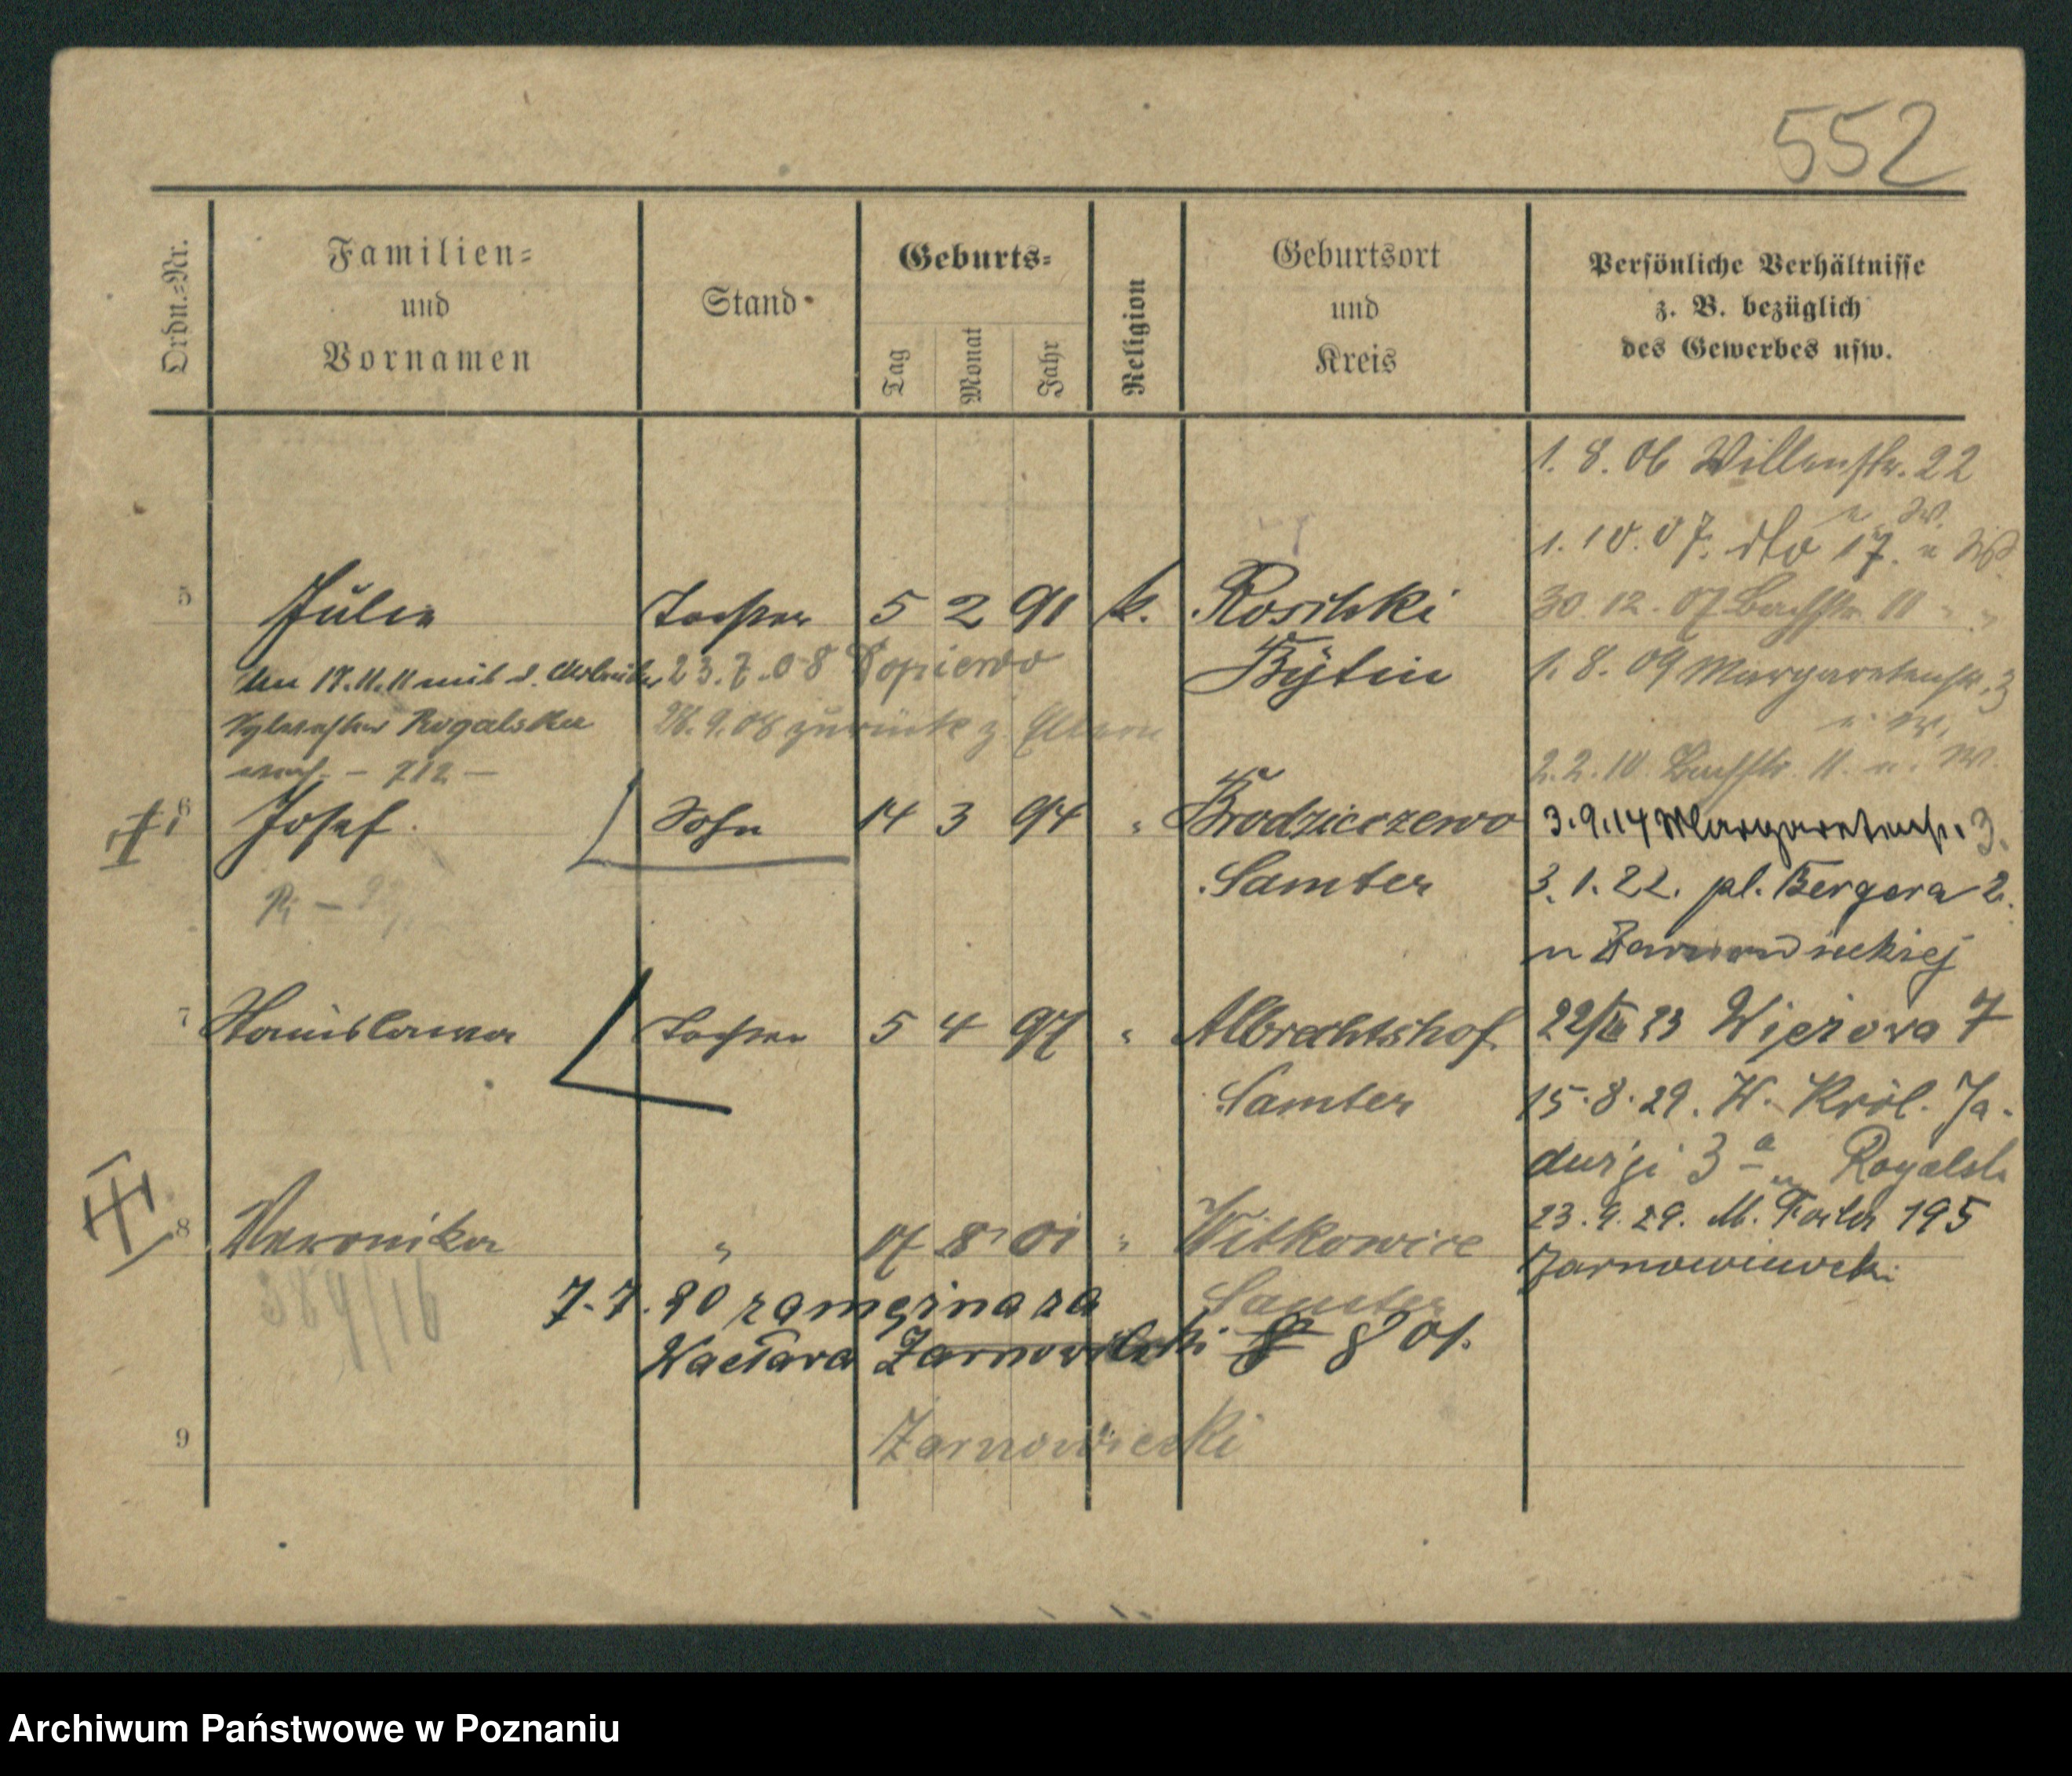 552
Ordn.-Nr.
Familien-
und
Vornamen
Stand
Geburts-
Tag
Monat
Jahr
Religion
Geburtsort
und
Kreis
Persönliche Verhältnisse
z. B. bezüglich
des Gewerbes usw.
1. 8. 06 Willenstr. 22
1. 10. 07. dto 17.
5 Julie Tochter 5 2 91 k. Rositki
30. 12. 07 Bachstr. 11 " "
Am 17.11.11 mit d. Arbeiter 23.7.08 Popierwo Bytin
1. 8. 09 Margaretenstr. 3
Sylvester Rogalski 28.9.08 zurück z. Eltern
verh. - 712 -
2. 2. 10 Bachstr. 11.
6 Josef Sohn 14 3 94 " Brodziszewo
Samter
3.9.14 Margaretenstr. 3.
3. 1. 22. pl. Bergera 2.
7 Stanislawa Tochter 5 4 97 " Albrechtshof
Samter
23 Wierzowa 7
15.8.29. W. Król. Ja-
dwigi 3 a Rogalsk
8 Veronika " 17 8 01 " Witkowice
Samter
23. 9. 29. M. Focha 195
Żarnowiecki
384/16
7.7.20 zamężna za
Wacława 8 01.
9
Żarnowiecki
Archiwum Państwowe w Poznaniu